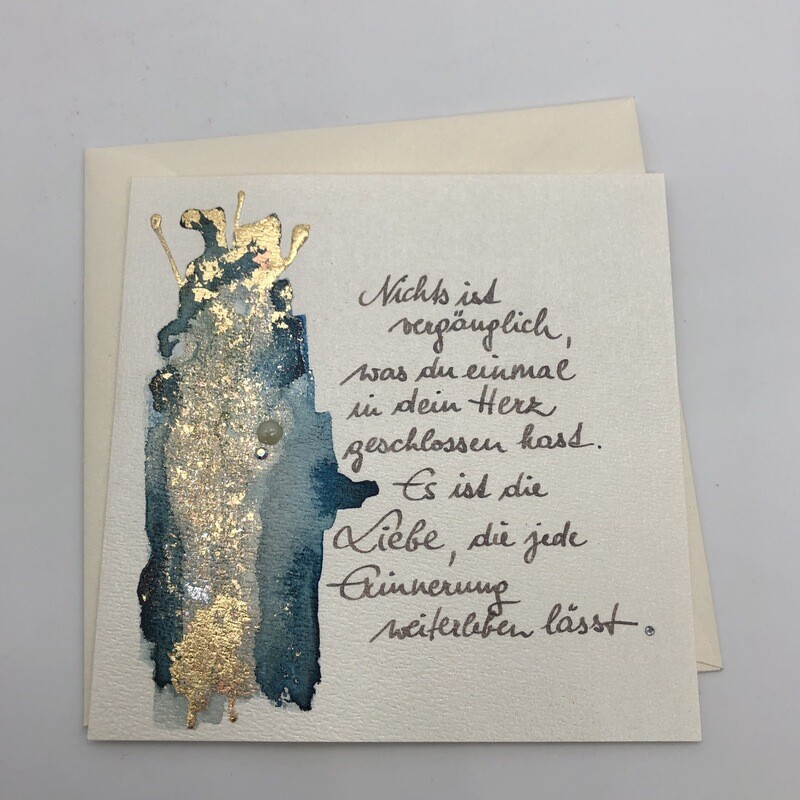 Nichts ist
vergänglich,
was du einmal
in dein Herz
geschlossen hast.
Es ist die
Liebe, die jede
Erinnerung
weiterleben lässt.